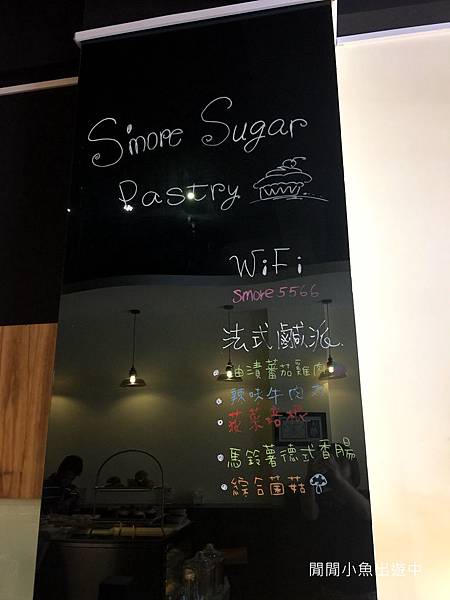 S'more Sugar
Pastry
WiFi
smore5566
法式鹹派
油漬蕃茄雞肉
辣味牛肉
菠菜培根
馬鈴薯德式香腸
綜合菌菇
閒閒小魚出遊中